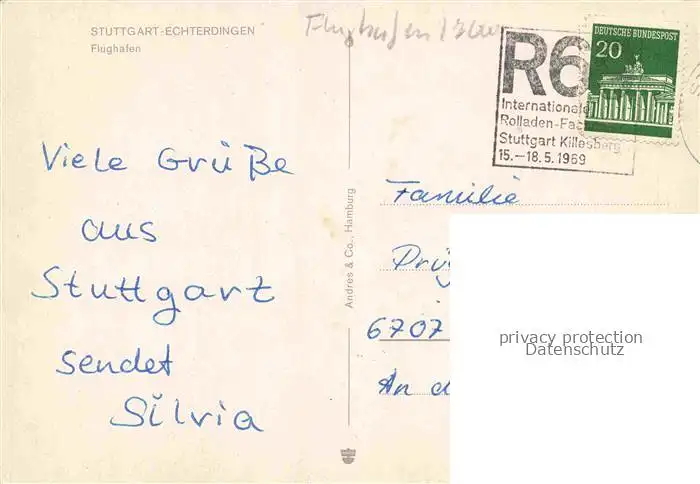 STUTTGART-ECHTERDINGEN
Flughafen
Flughafen
R6
Internationale
Rolladen-Fac
Stuttgart Killesberg
15.–18.5.1969
DEUTSCHE BUNDESPOST
20
Viele Grüße
aus
Stuttgart
sendet
Silvia
Andres & Co., Hamburg
Familie
6707
An d
privacy protection
Datenschutz